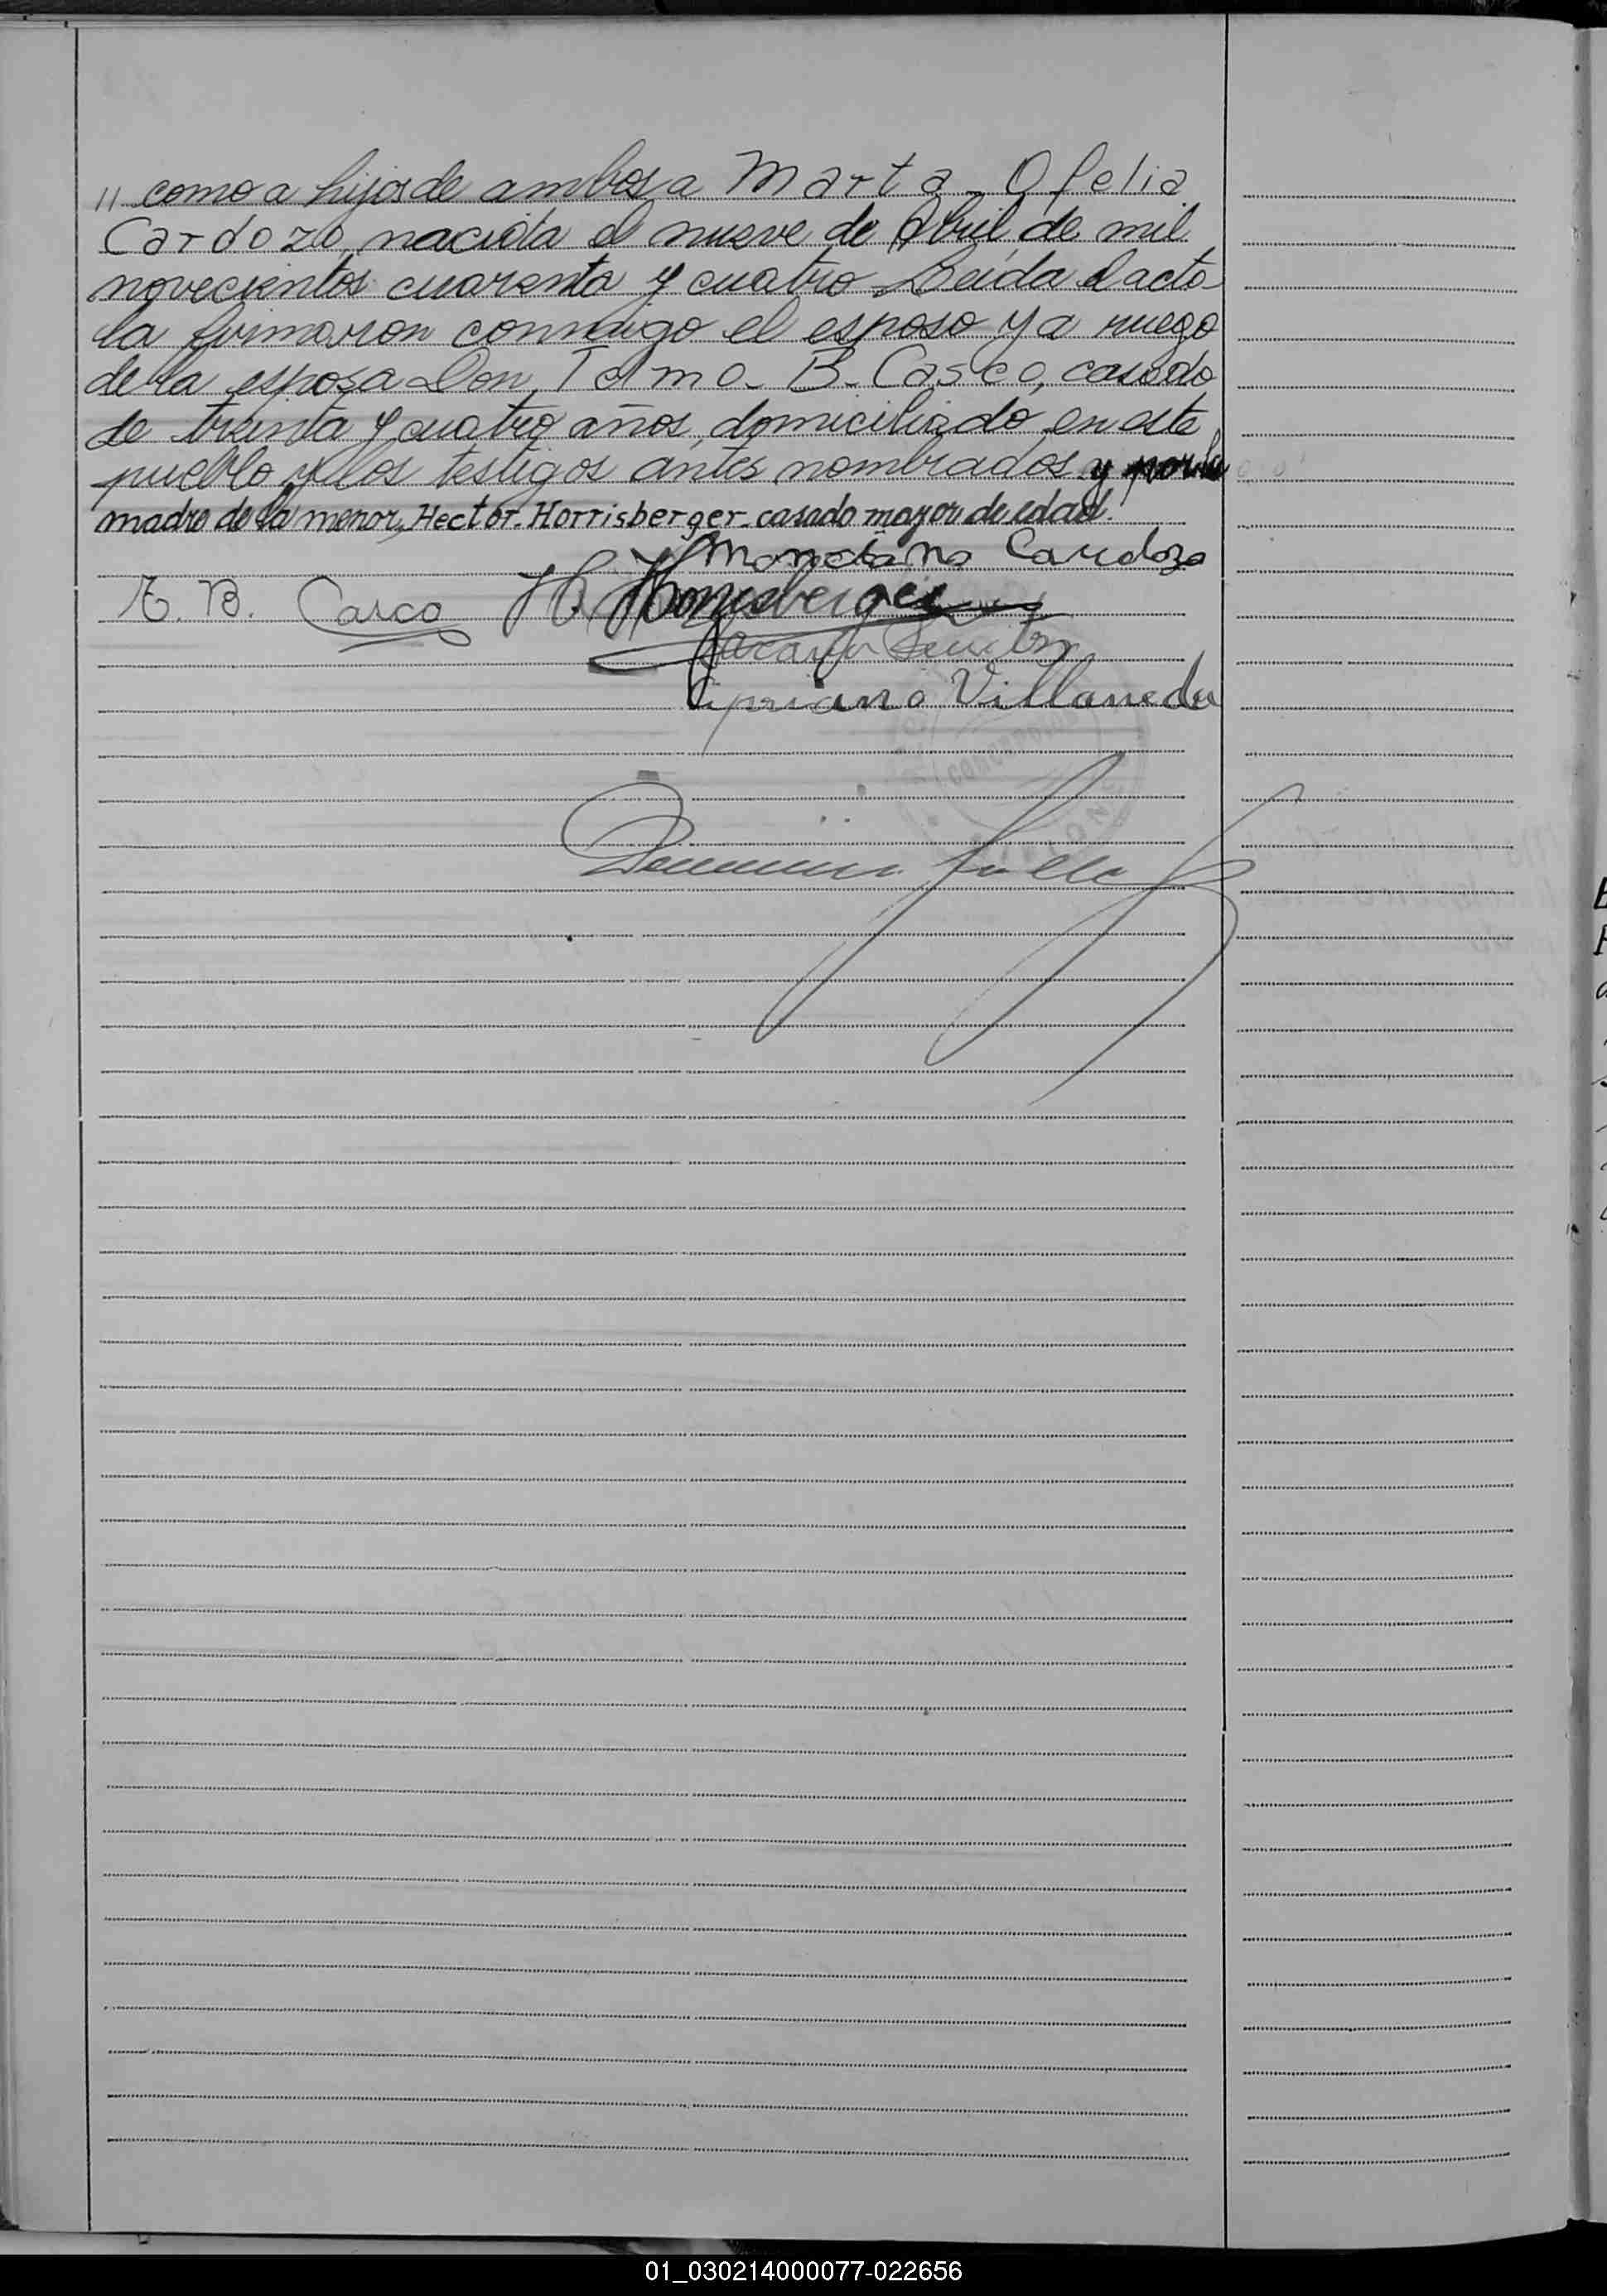 " como a hija de ambos a Marta Ofelia
Cardozo, nacida el nueve de Abril de mil
novecientos cuarenta y cuatro Leída el acta
la firmaron conmigo el esposo y a ruego
de la esposa Don Telmo B. Casco, casado
de treinta y cuatro años, domiciliado en este
pueblo y los testigos antes nombrados y por la
madre de la menor, Hector Horrisberger casado mayor de edad.
Cardozo
T. B. Casco H. Horrisberger
Cipriano Villaneda
01_030214000077-022656